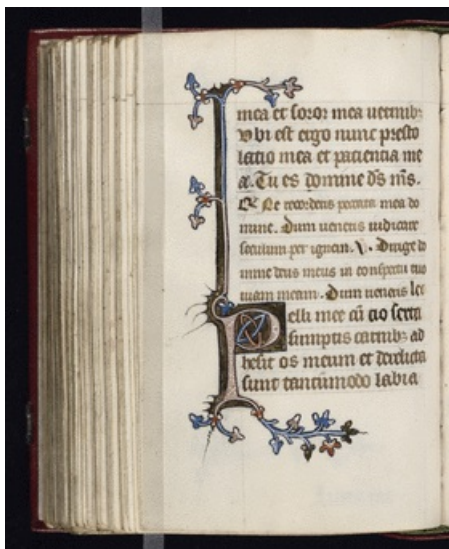 mea et soror mea uermibꝫ
Vbi est ergo nunc presto
latio mea et paciencia me
a. Tu es domine dſ mſ.
R Ne recorderis peccata mea do
mine. Dum ueneris iudicare
seculum per ignem. V. Dirige do
mine deus meus in conspectu tuo
uiam meam. Dum ueneris lec
Pelli mee cū
sumptis carnibꝫ ad
hesit os meum et derelicta
sunt tantūmodo labia